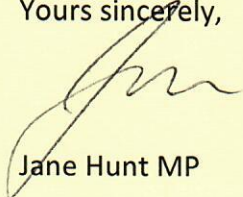 Yours sincerely,
Jane Hunt MP